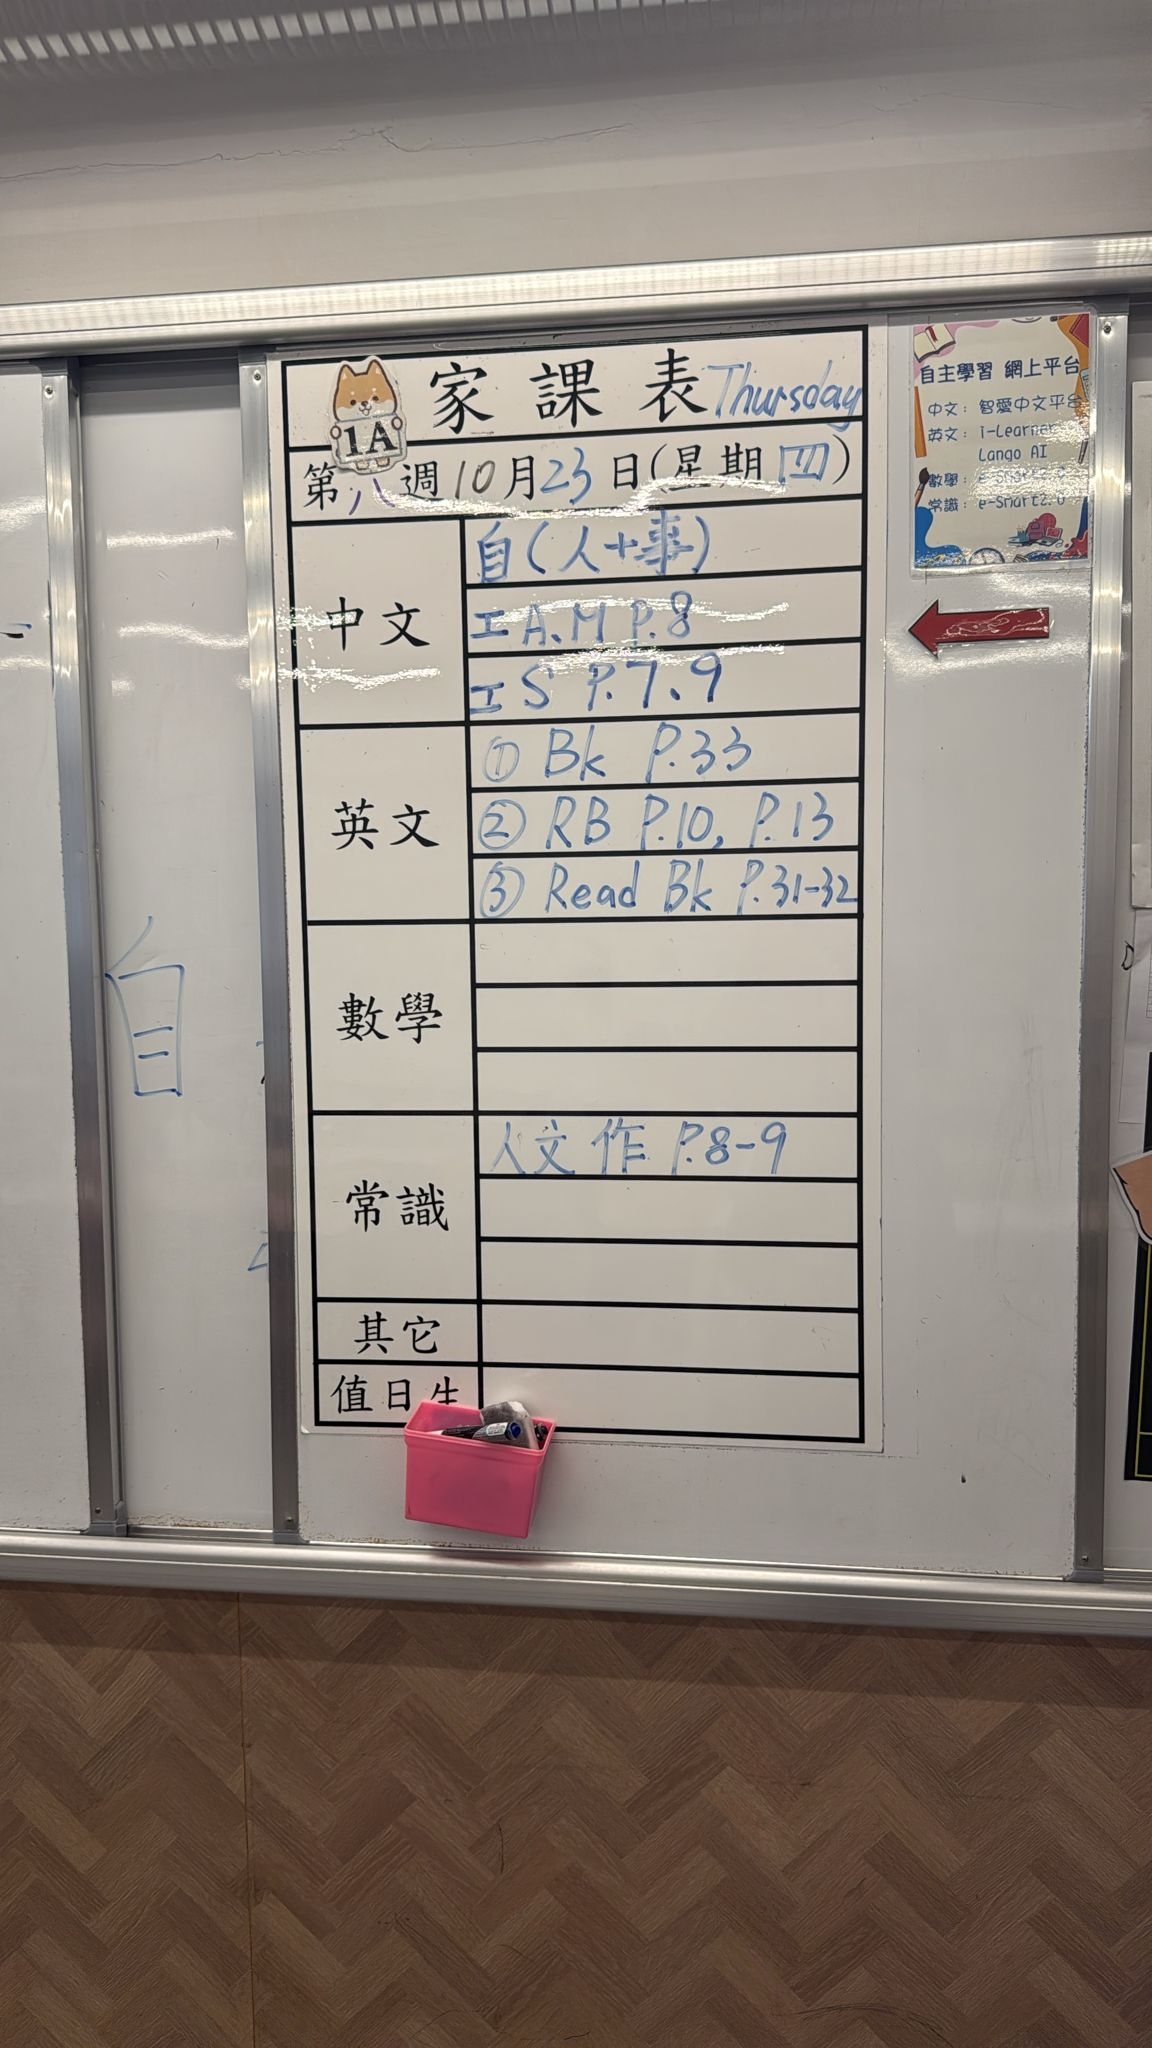 家課表 Thursday
1A
第八週10月23日(星期四)
中文
自(人+事)
工A.M P.8
工S P.7、9
英文
① Bk P.33
② RB P.10, P.13
③ Read Bk P.31-32
數學
常識
人文 作 P.8-9
其它
值日生
自主學習 網上平台
中文：智愛中文平台
英文：i-Learner
Lango AI
數學：
常識：e-Smart2.0
自